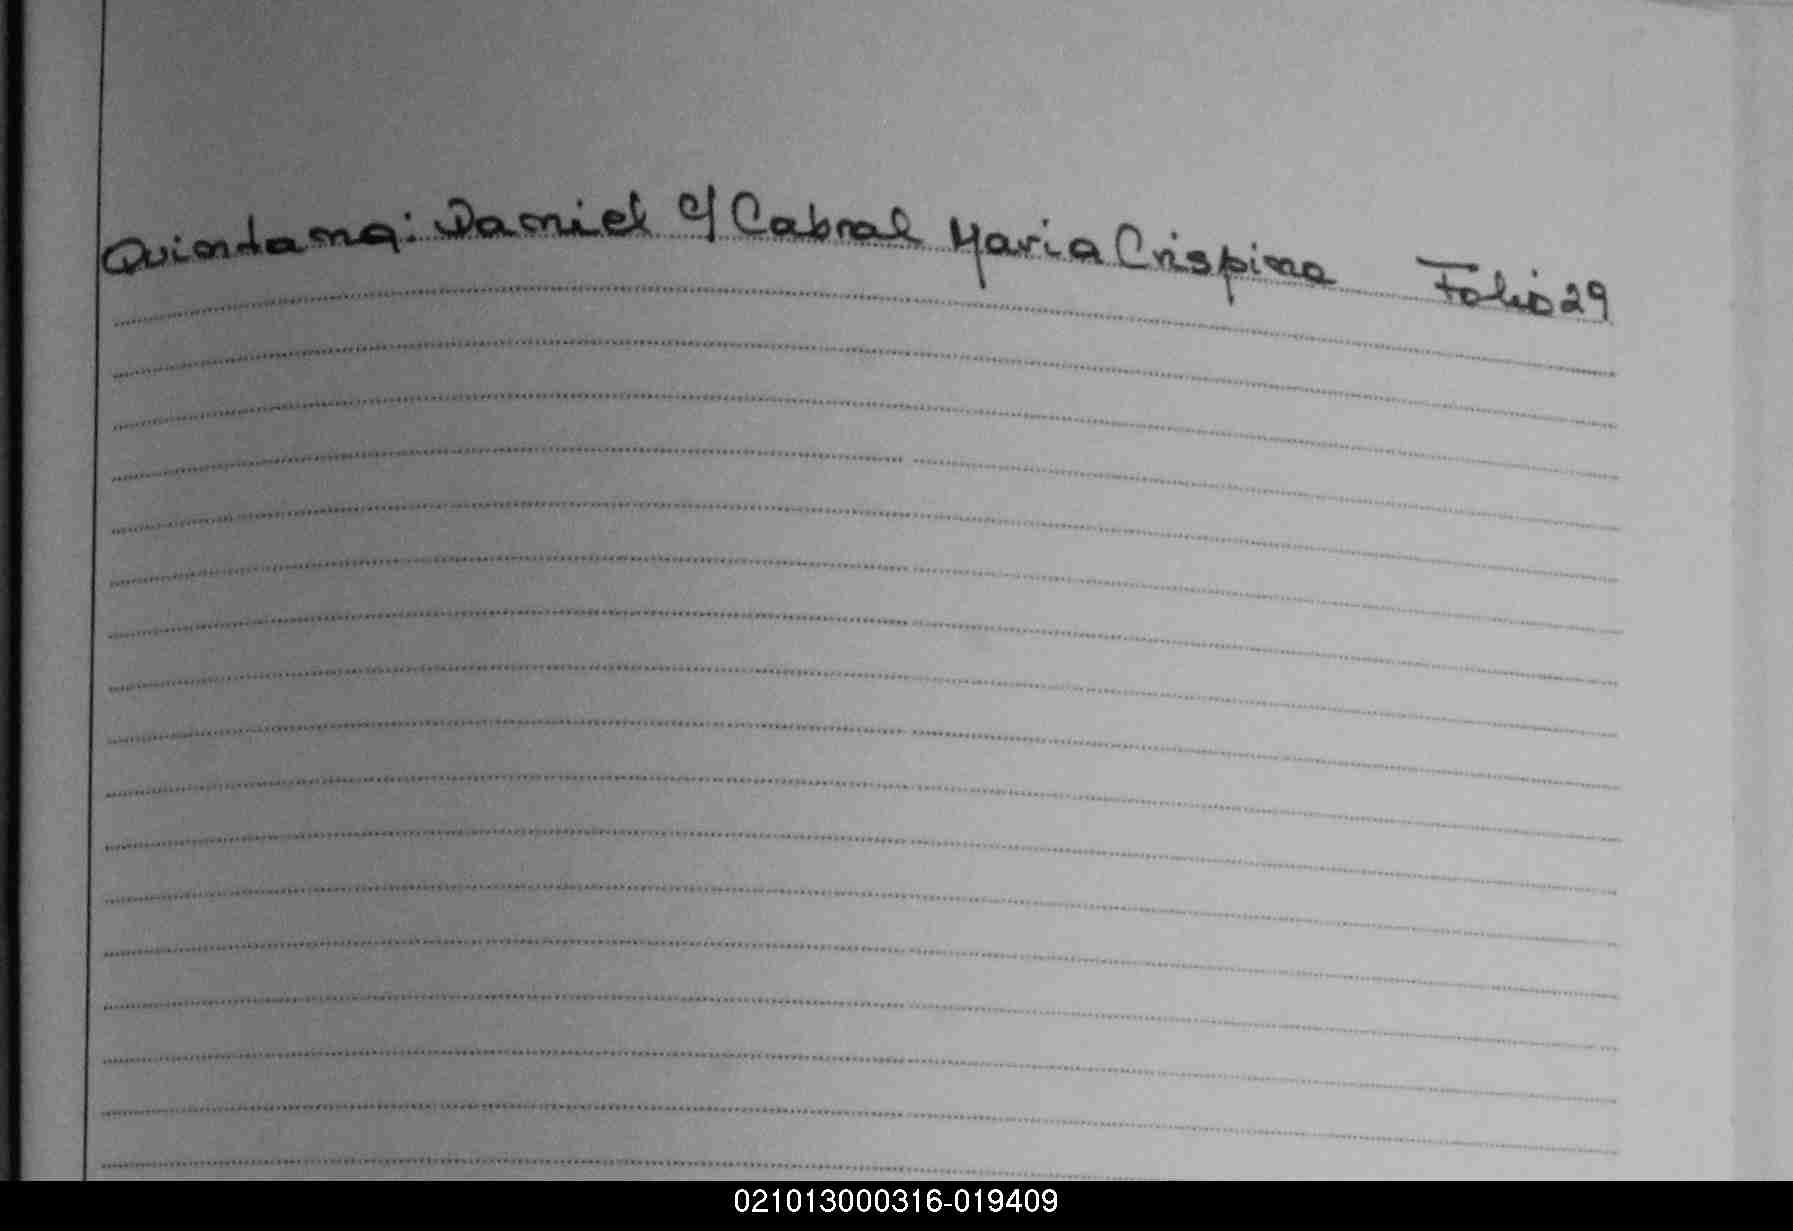 Quintana: Daniel c/ Cabral Maria Crispina Folio 29
021013000316-019409